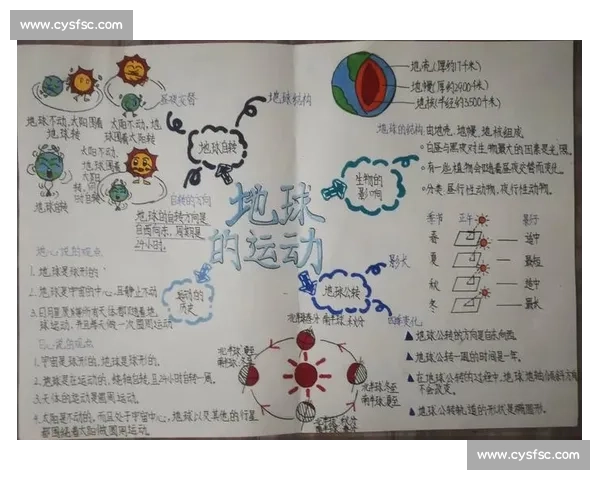 www.cysfsc.com
地球不动,太阳围着地球转
太阳不动,地球围着太阳转
昼夜交替
地球结构
地壳(厚约17千米)
地幔(厚约2900千米)
地核(半径约3500千米)
地球的结构 由地壳,地幔,地核组成
地球自转
太阳不动,
地球围着
地球自转
自转的方向
地球的自转方向是
自西向东,周期是
24小时.
地球
的运动
生物的
影响
白昼与黑夜对生物最大的因素是光照.
有一些植物会随着昼夜交替而变化.
分类 昼行性动物,夜行性动物.
季节 正午 影行
春 适中
夏 最短
秋 适中
冬 最长
影长
地球公转
四季变化
运动的
历史
地心说的观点
1.地球是球形的
2.地球是宇宙的中心,且静止不动
3.日月星
球运动,并且每天做一次圆周运动
日心说的观点
1.宇宙是球形的,地球是球形的.
2.地球是在运动的,
且24小时自转一周.
3.天体的运动是圆周运动.
4.太阳是不动的,而且处于宇宙中心,地球以及其他的行星
都围绕着太阳做圆周运动.
北半球春分 南半球秋分
北半球夏至
南半球冬至
北半球冬至
南半球夏至
北半球秋分
南半球春分
地球公转的方向是自东向西.
地球公转一周的时间是一年.
在地球公转的过程中,地球地轴倾斜方向
不会改变.
地球公转轨道的形状是椭圆形.
www.cysfsc.com